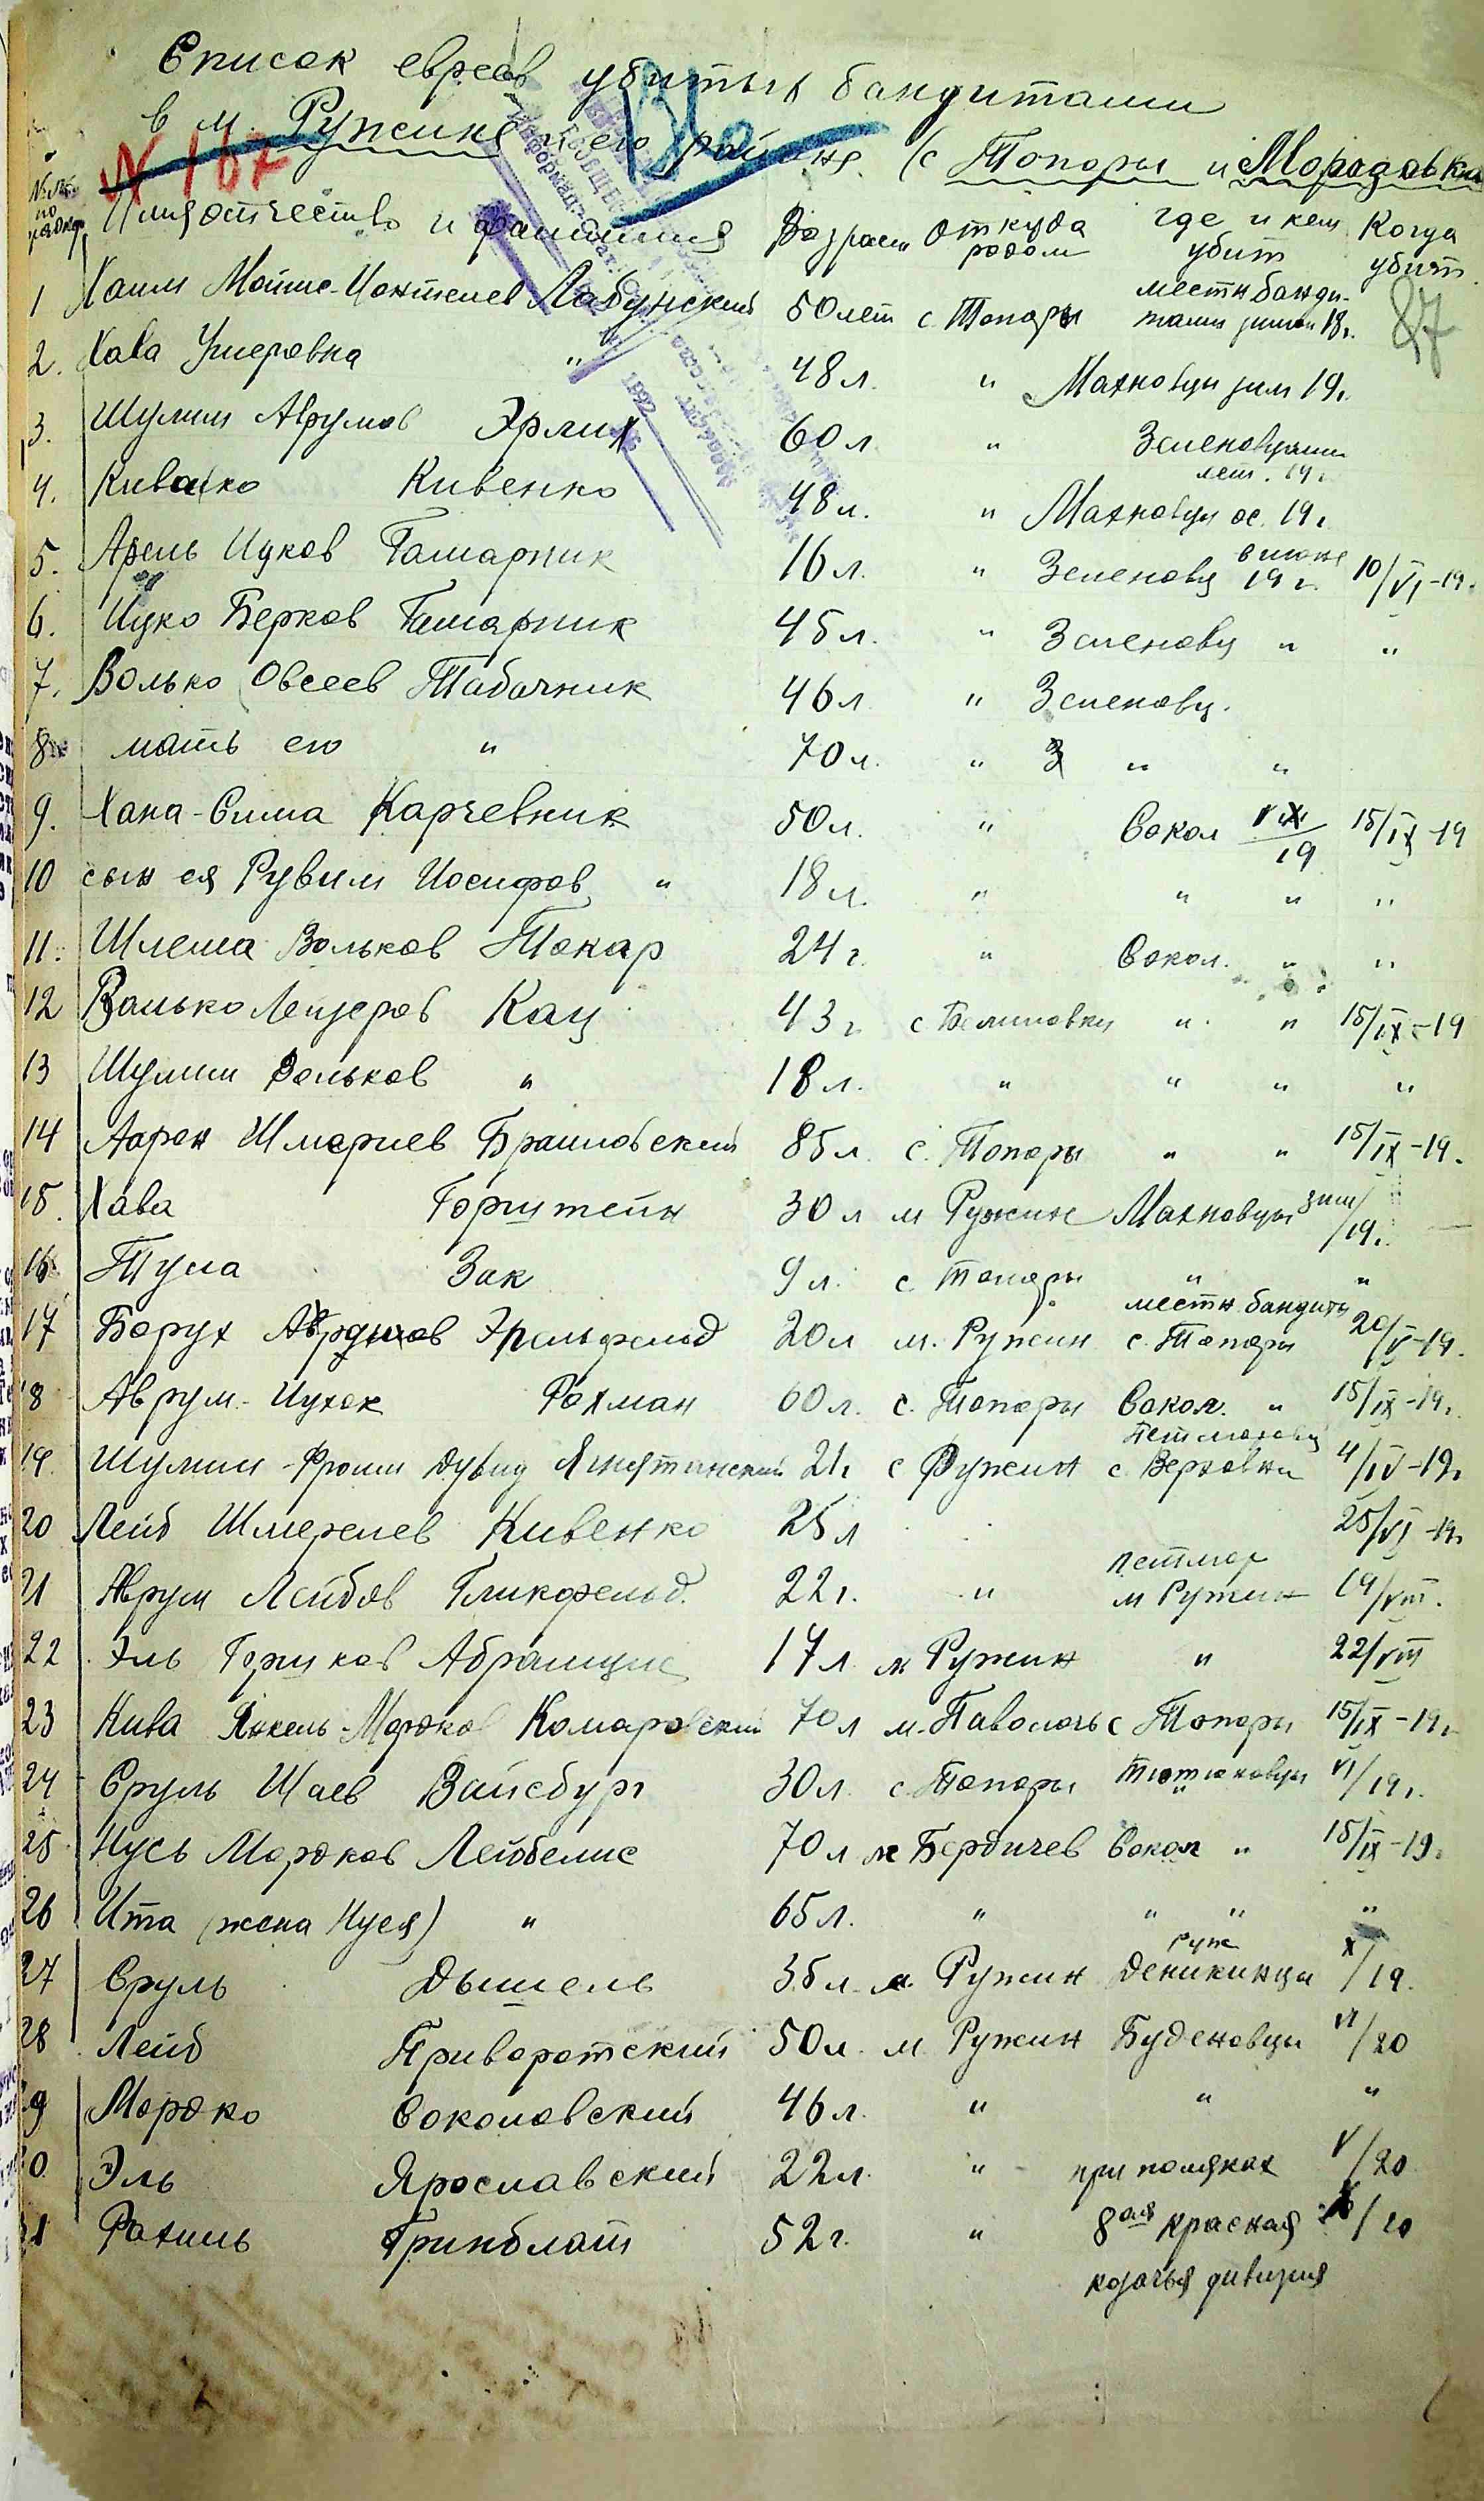 Список евреев убитых бандитами
в м. Ружине и его районе (с Топоры и Мораздовка
N 187
№№ по порядку Имя отчество и фамилия Возраст Откуда родом где и кем убит Когда убит
87
1 Хаим Мойше-Ионтелев Лабунский 50 лет с. Топоры местн банди-
тами зимой 18 г.
2. Хава Умеровна " 48 л. " Махновцы зим 19 г.
3. Шулим Аврумов Эрлих 60 л. " Зеленовцами
лет. 19 г.
4. Кивенко 48 л. " Махновцы ос. 19 г.
5. Арель Ицков Гамарник 16 л. " Зеленовц в июне 19 г. 10/VI-19.
6. Ицко Берков Гамарник 45 л. " Зеленовц " "
7. Волько Овсеев Табачник 46 л " Зеленовц.
8 мать его " 70 л. " " "
9. Хана-Сима Карчевник 50 л. " Сокол IX/19 15/IX-19
10 сын ея Рувим Иосифов " 18 л. " " " "
11. Шлема Вольков Токар 24 г. " Сокол. " "
12 Волько Лейзеров Кац 43 г. с " " 15/IX-19
13 Шулим Вольков " 18 л. " " " "
14 Аарон Шмериев Браиловский 85 л. с. Топоры " " 15/IX-19.
15. Хава Горштейн 30 л м Ружин Махновцы зим/19.
16 Зак 9 л. с. Топоры " "
17 Борух Эрльфельд 20 л м. Ружин местн. бандиты
с. Топоры 20/V-19.
18 Аврум-Ицхок Рохман 60 л. с. Топоры Сокол. " 15/IX-19.
19. Шулим-Фроим Дувид 21 г с Ружин с. Верховни 4/IV-19.
20 Лейб Шмерелев Кивенко 25 л 25/VI-19.
21 Аврум Лейбов Гликфельд. 22 г. " петлюр
м Ружин 19/VIII.
22 Эль Горшков 17 л м Ружин " 22/VIII
23 Кива Янкель-Мордков Комаровский 70 л м. Паволочь с Топоры 15/IX-19.
24 Сруль Шаев Вайсбург 30 л. с. Топоры Тютюковцы " VI/19 г.
25 Нусь Мордков Лейбелис 70 л м Бердичев Сокол " 15/IX-19.
26 Ита (жена Нуся) " 65 л. " " " "
27 Сруль Дышель 35 л. м. Ружин Руж
Деникинцы X/19.
28 Лейб Приворотский 50 л. м. Ружин Буденовцы VI/20
29 Мордко Соколовский 46 л. " " "
30 Эль Ярославский 22 л. " при поляках V/20
31 Рахиль Гринблат 52 г. " 8ая красная /20
козачья дивизия